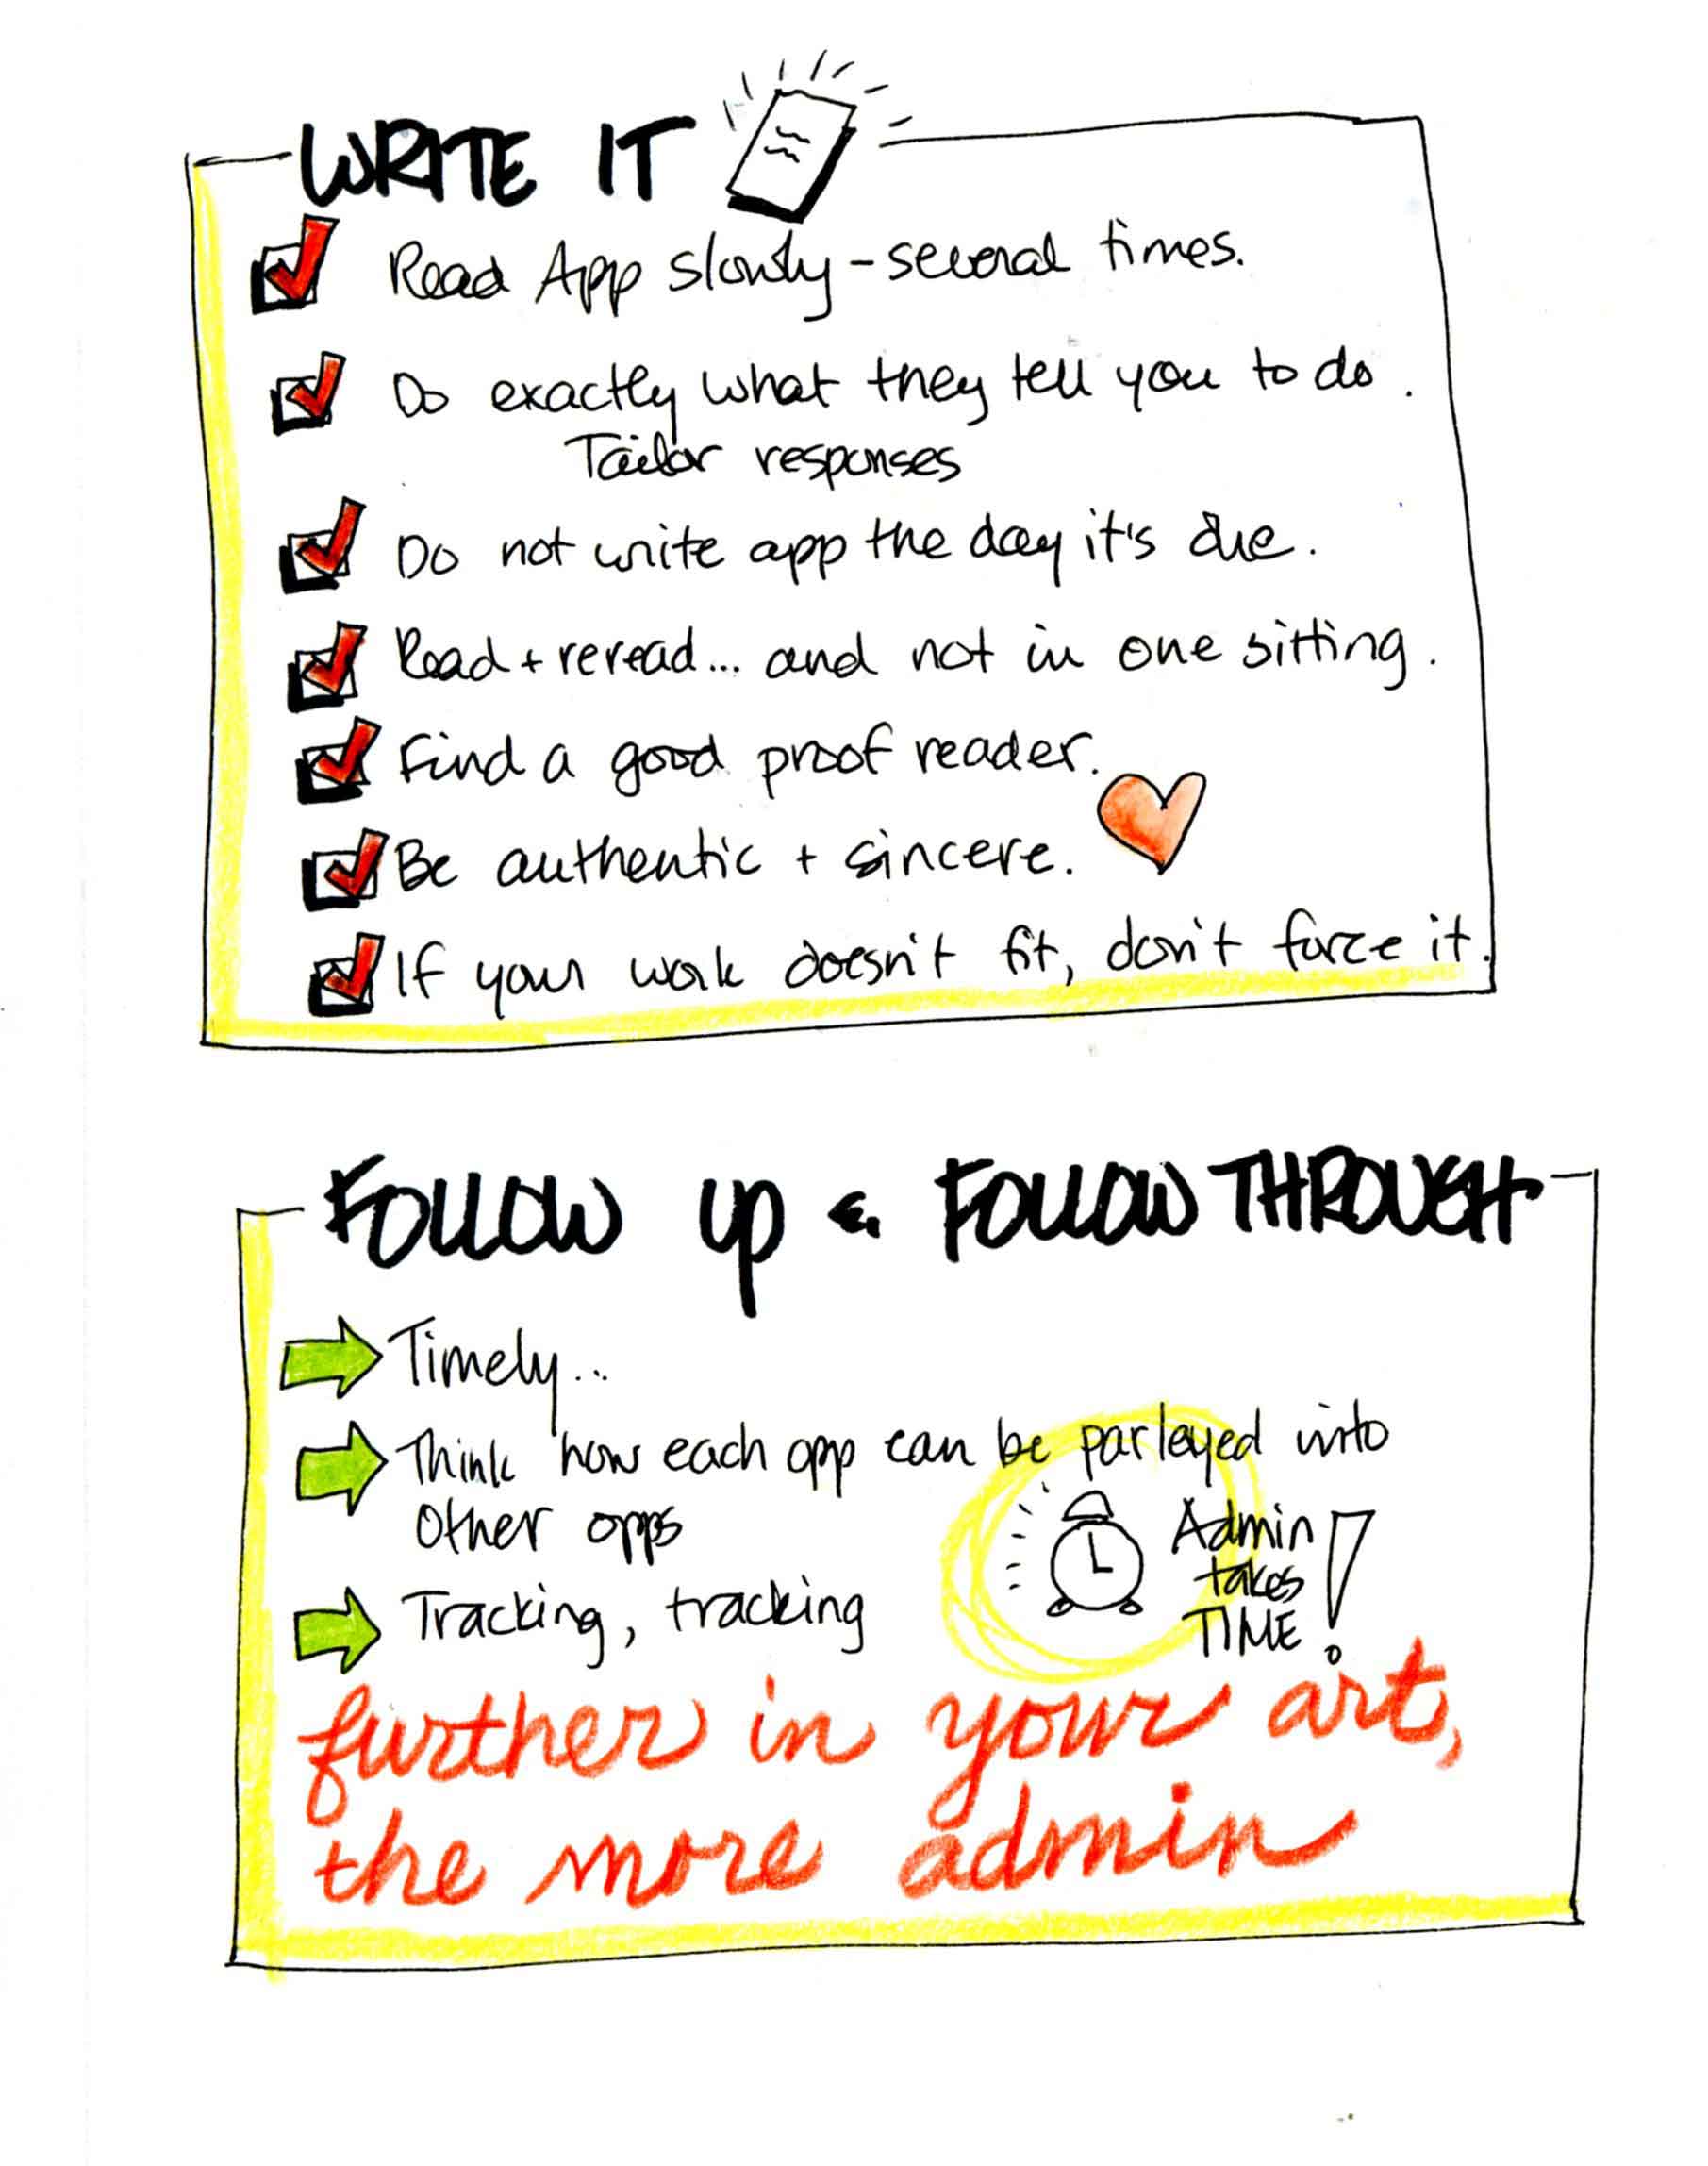 WRITE IT
Read App slowly - several times.
Do exactly what they tell you to do.
Tailor responses
Do not write app the day it's due.
Read + reread... and not in one sitting.
Find a good proof reader.
Be authentic + sincere.
If your work doesn't fit, don't force it.
FOLLOW UP & FOLLOW THROUGH
Timely...
Think how each opp can be parleyed into
other opps
Admin
takes
TIME!
Tracking, tracking
further in your art,
the more admin